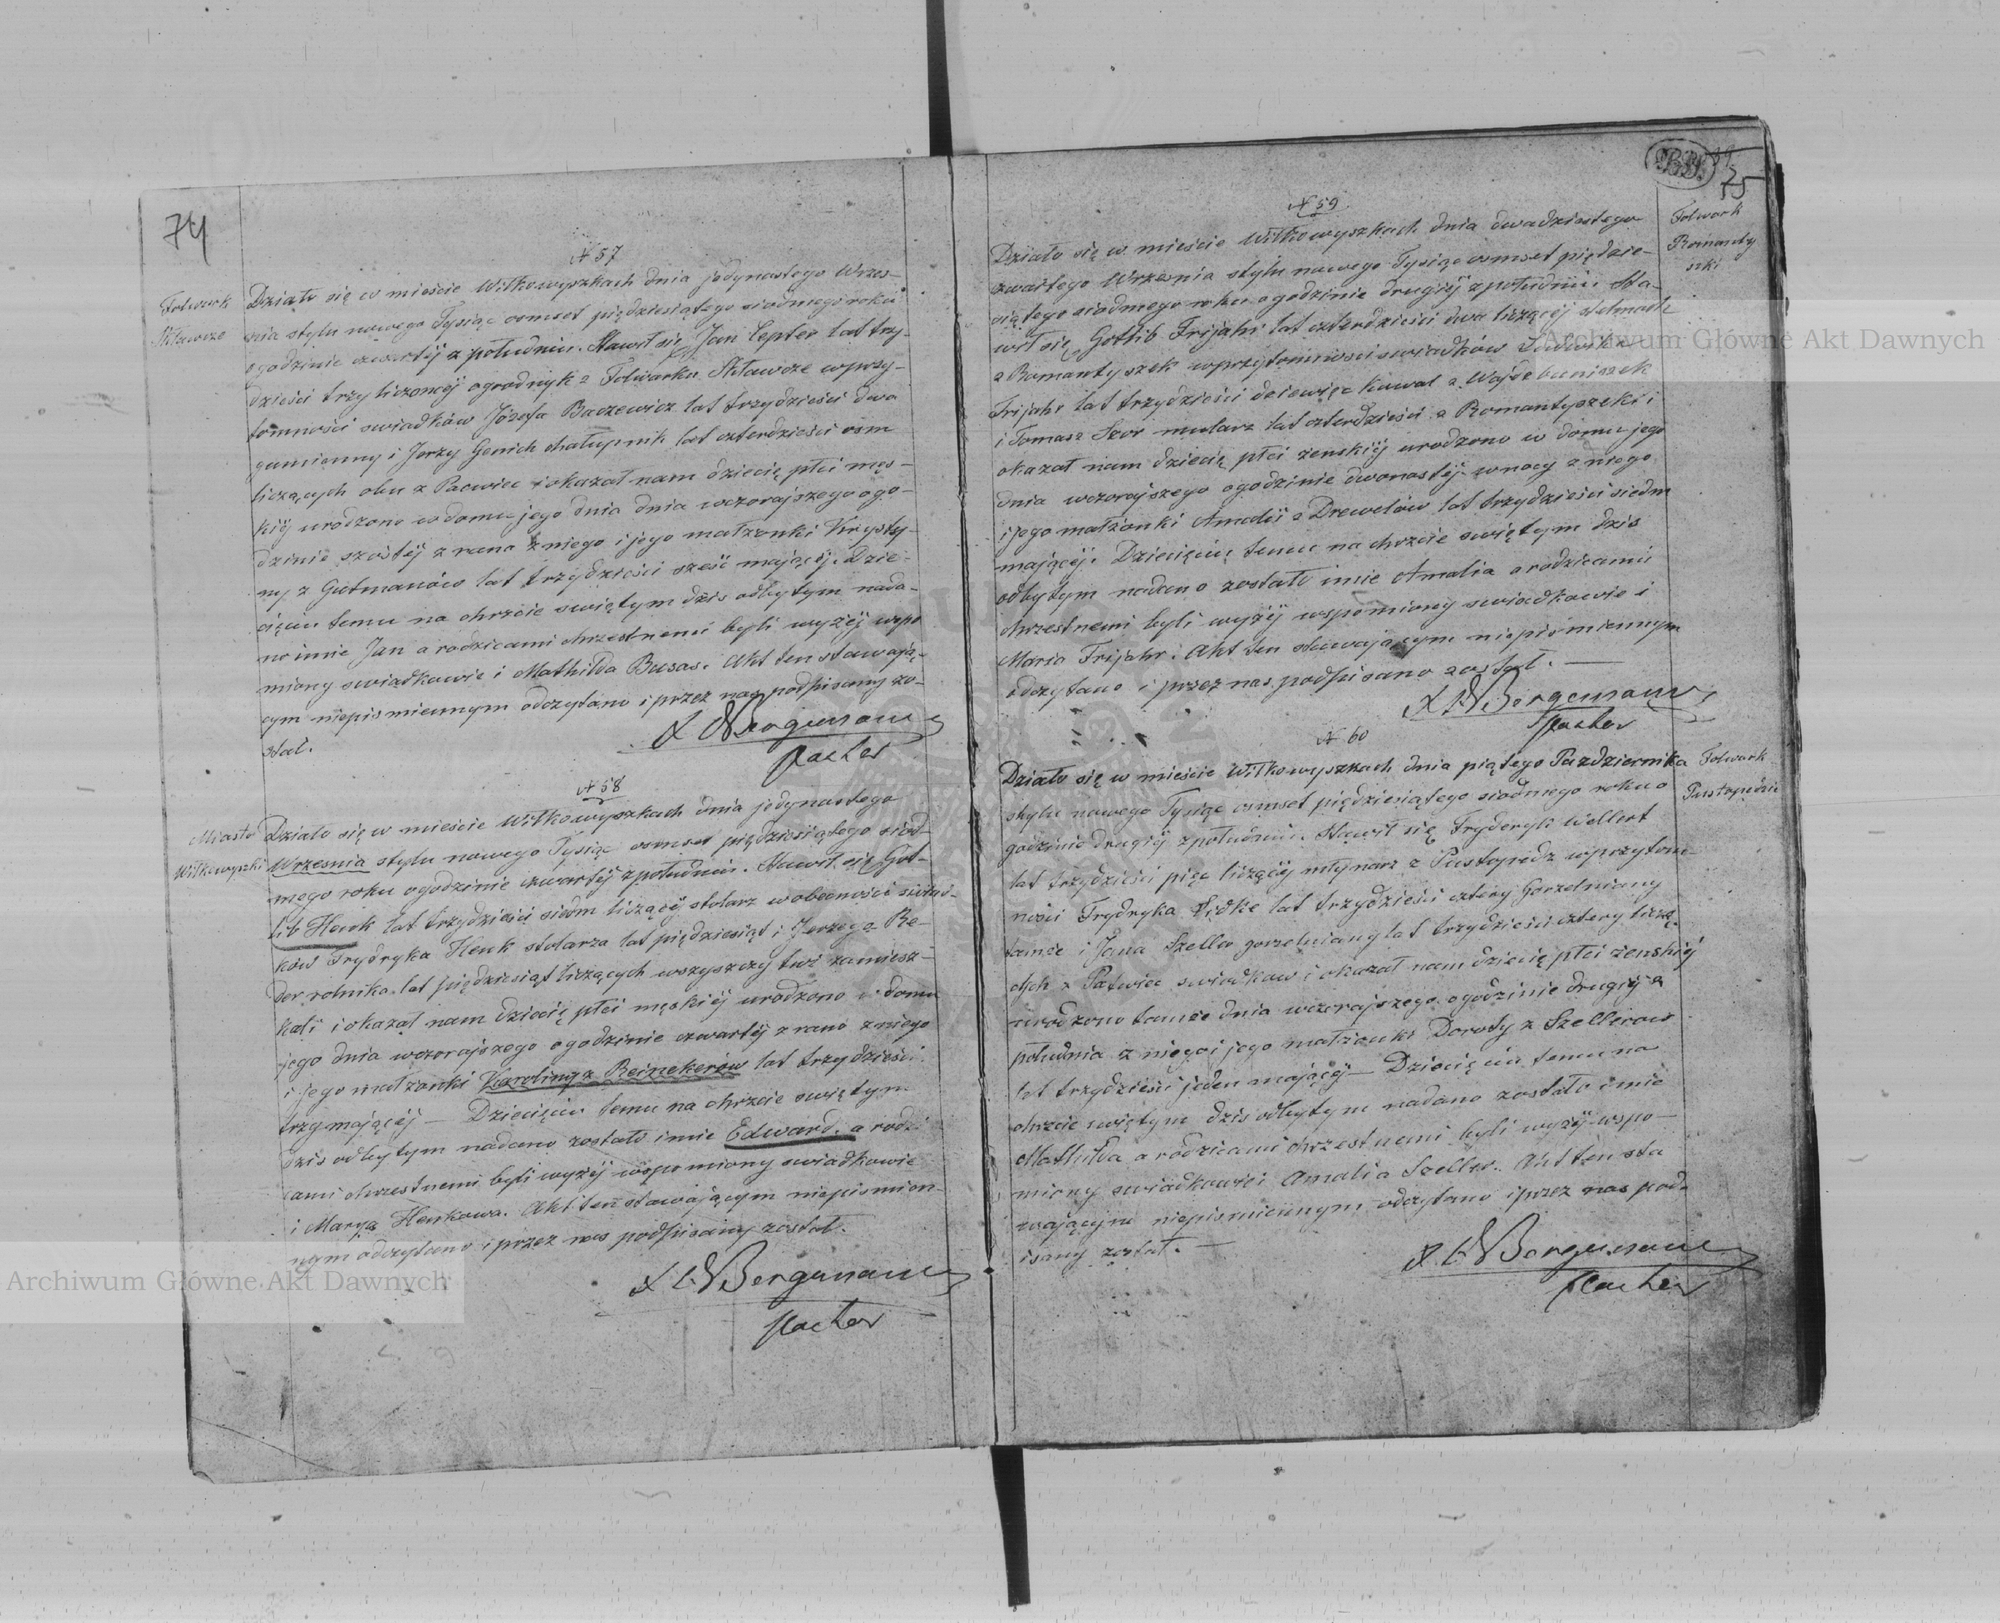 74
N 57
Folwark
Działo się w mieście Wiłkowyszkach dnia jedynastego Wrzes-
nia stylu nowego Tysiąc osmset pięćdziesiątego siodmego roku
ogodzinie czwartéj z południu. Stawił się Jan Lepter lat trzy-
dzieści trzy liczoncéj ogrodnyk z Folwarku wprzy-
tomności swiadków Józefa Baczewicz lat trzydzieści dwa
gumienny i Jerzy Genich chałupnik lat czterdzieści osm
liczących obu z Pacwiec i okazał nam dziecię płci męs-
kiéj urodzono w domu jego dnia dnia wczorajszego ogo-
dzinie szostéj z rana z niego i jego małzonki Krysty-
ny z Gutmanów lat trzydzieści szesć mającéj. Dzie-
cięciu temu na chrzcie swiętym dzis odbytym nada-
no imie Jan a rodzicami chrzestnemi byli wyżéj wspo
miony swiadkowie i Mathilda Busas. Akt ten stawają-
cym niepismiennym odczytano i przez nas podpisany zo-
stał.
Bergemann
Pastor
N 58
Miasto
Wiłkowyszki
Działo się w mieście Wiłkowyszkach dnia jedynastego
Wrzesnia stylu nowego Tysiąc osmset pięćdziesiątego siod-
mego roku ogodzinie czwartéj z południu. Stawił się Got-
lib Henk lat trzydzieści siedm liczącéj stolarz w obecności swiad-
ków Frydryka Henk stolarza lat pięćdziesiąt i Jerzego Re-
der rolnika lat pięćdziesiąt liczących wszyszczy tui zamiesz-
kali i okazał nam dziecię płci męskiéj urodzono w domu
jego dnia wczorajszego ogodzinie czwartéj z rana z niego
i jego małzonki Karoliny z Reinekerów lat trzydzieści
trzy mającéj — Dziecięciu temu na chrzcie swiętym
dzis odbytym nadano zostało imie Edward, a rodzi
cami chrzestnemi byli wyżéj wspomiony swiadkowie
i Marya Henkowa. Akt ten stawającym niepismien-
nym odczytano i przez nas podpisany został.
Bergemann
Pastor
75
N 59
Folwark
Romanty
szki
Działo się w mieście Wiłkowyszkach dnia dwadziestego
czwartego Wrzesnia stylu nowego Tysiąc osmset pięćdzie-
siątego siodmego roku ogodzinie drugiéj z południu. Sta-
wił się Gotlib Frijahr lat czterdzieści dwa liczącéj stelmach
z Romantyszek wprzytomności swiadków Ludwika
Frijahr lat trzydzieści dziewięc kowal z
i Tomasz Szor mularz lat czterdzieści z Romantyszki i
okazał nam dziecię płci zenskiéj urodzono w domu jego
dnia wczorajszego ogodzinie dwonastéj wnocy z niego
i jego małzonki Amalii z Drewelów lat trzydzieści siedm
mającéj. Dziecięciu temu na chrzcie swiętym dzis
odbytym nadano zostało imie Amalia a rodzicami
chrzestnemi byli wyżéj wspomiony swiadkowie i
Maria Frijahr. Akt ten stawającym niepismiennym
odczytano i przez nas podpisano został. —
Bergemann
Pastor
N 60
Folwark
Działo się w mieście Wiłkowyszkach dnia piątego Pazdziernika
stylu nowego Tysiąc osmset pięćdziesiątego siodmego roku o
godzinie drugiéj z południu. Stawił się Fryderyk Wellert
lat trzydzieści pięc liczącéj młynarz z Pustopedz wprzytom-
ności Frydryka Lidke lat trzydzieści cztery Gorzelniany
tamze i Jana Szeller gorzelniany lat trzydzieści cztery liczą-
cych z Pacwiec swiadkow i okazał nam dziecię płci zenskiéj
urodzono tamze dnia wczorajszego ogodzinie drugiéj z
południa z niego i jego małzonki Doroty z Szellerow
lat trzydzieści jeden mającéj — Dziecięciu temu na
chrzcie swiętym dzis odbytym nadano zostało imie
Mathilda a rodzicami chrzestnemi byli wyżéj wspo-
miony swiadkowie i Amalia Szeller. Akt ten sta
wającym niepismiennym odczytano i przez nas pod-
isany został. —
Bergemann
Pastor
Archiwum Główne Akt Dawnych
Archiwum Główne Akt Dawnych